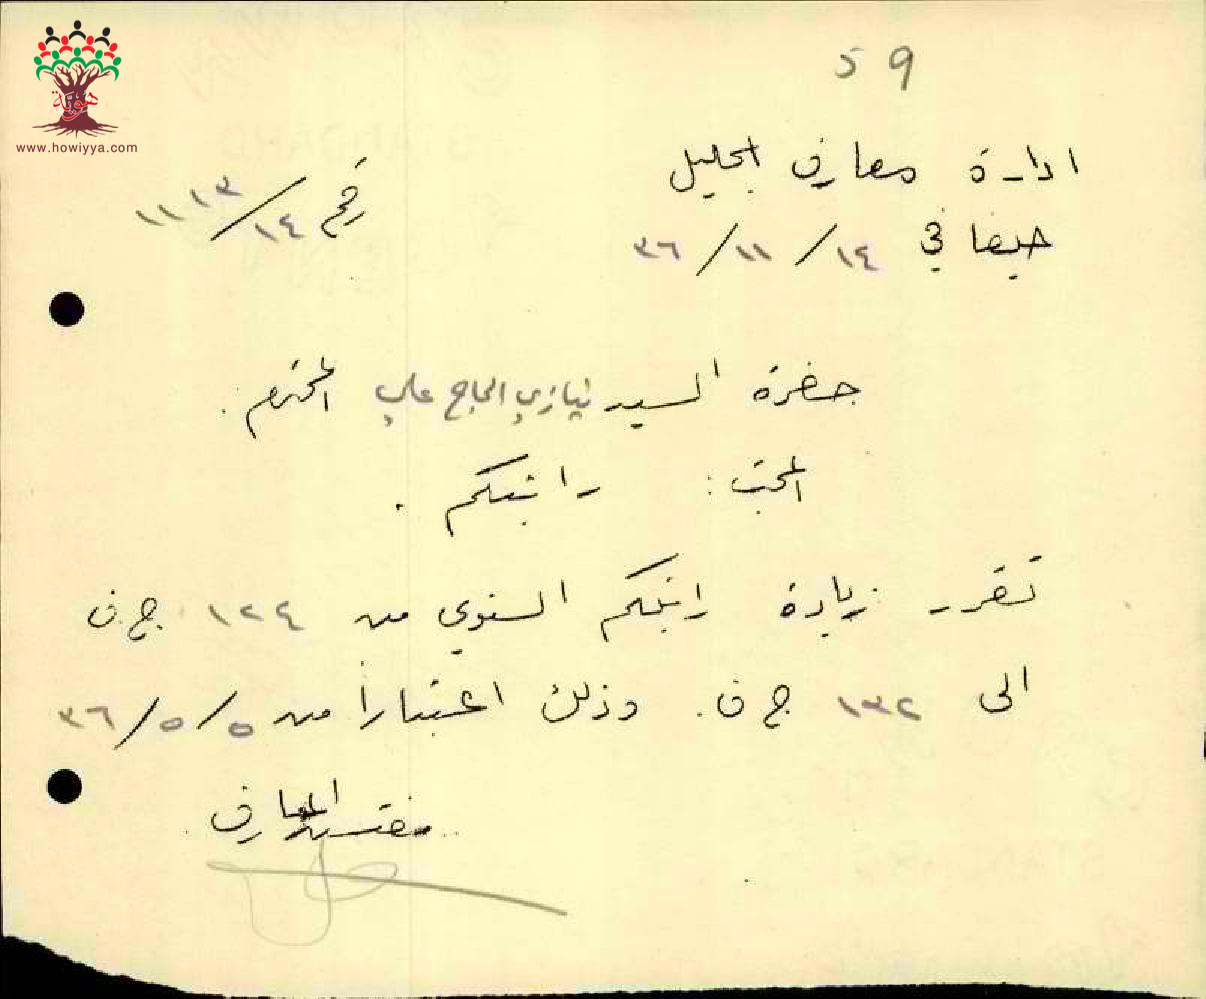 هوية
www.howiyya.com
59
ادارة معارف الجليل
رقم ١٤/١١١٣
حيفا في ١٤/١١/٣٦
حضرة السيد نيازي الحاج علي المحترم.
المبحث: راتبكم.
تقرر زيادة راتبكم السنوي من ١٢٤ ج.ف
الى ١٣٢ ج ف. وذلك اعتبارا من ٥/٥/٣٦
مفتش المعارف